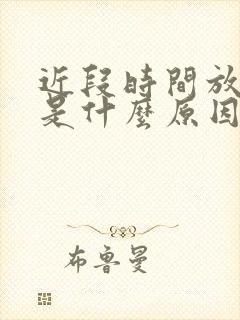 近段時間放
是什麼原因
布魯曼